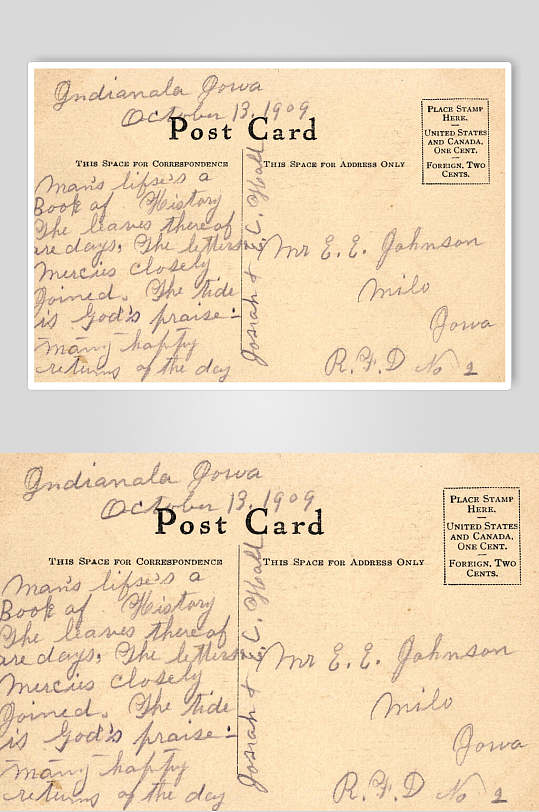 Indianala Iowa
October 13, 1909
Post Card
THIS SPACE FOR CORRESPONDENCE
THIS SPACE FOR ADDRESS ONLY
PLACE STAMP
HERE.
UNITED STATES
AND CANADA,
ONE CENT.
FOREIGN, TWO
CENTS.
Man's lifse's a
Book of History
The leaves there of
are days, The letters
Mercies closely
Joined. The tide
is God's praise:-
Many happy
returns of the day
Josiah & L. C. Hall
Mr E. E. Johnson
Milo
Iowa
R.F.D No 2
Indianala Iowa
October 13, 1909
Post Card
THIS SPACE FOR CORRESPONDENCE
THIS SPACE FOR ADDRESS ONLY
PLACE STAMP
HERE.
UNITED STATES
AND CANADA,
ONE CENT.
FOREIGN, TWO
CENTS.
Man's lifse's a
Book of History
The leaves there of
are days, The letters
Mercies closely
Joined. The tide
is God's praise:-
Many happy
returns of the day
Josiah & L. C. Hall
Mr E. E. Johnson
Milo
Iowa
R.F.D No 2